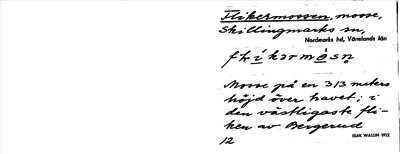 Flikermossen, mosse,
Skillingmarks sn,
Nordmarks hd, Värmlands län
Mosse på en 313 meters
höjd över havet; i
den västligaste fli-
ken av Bergerud
12
ISAK WALLIN 1972